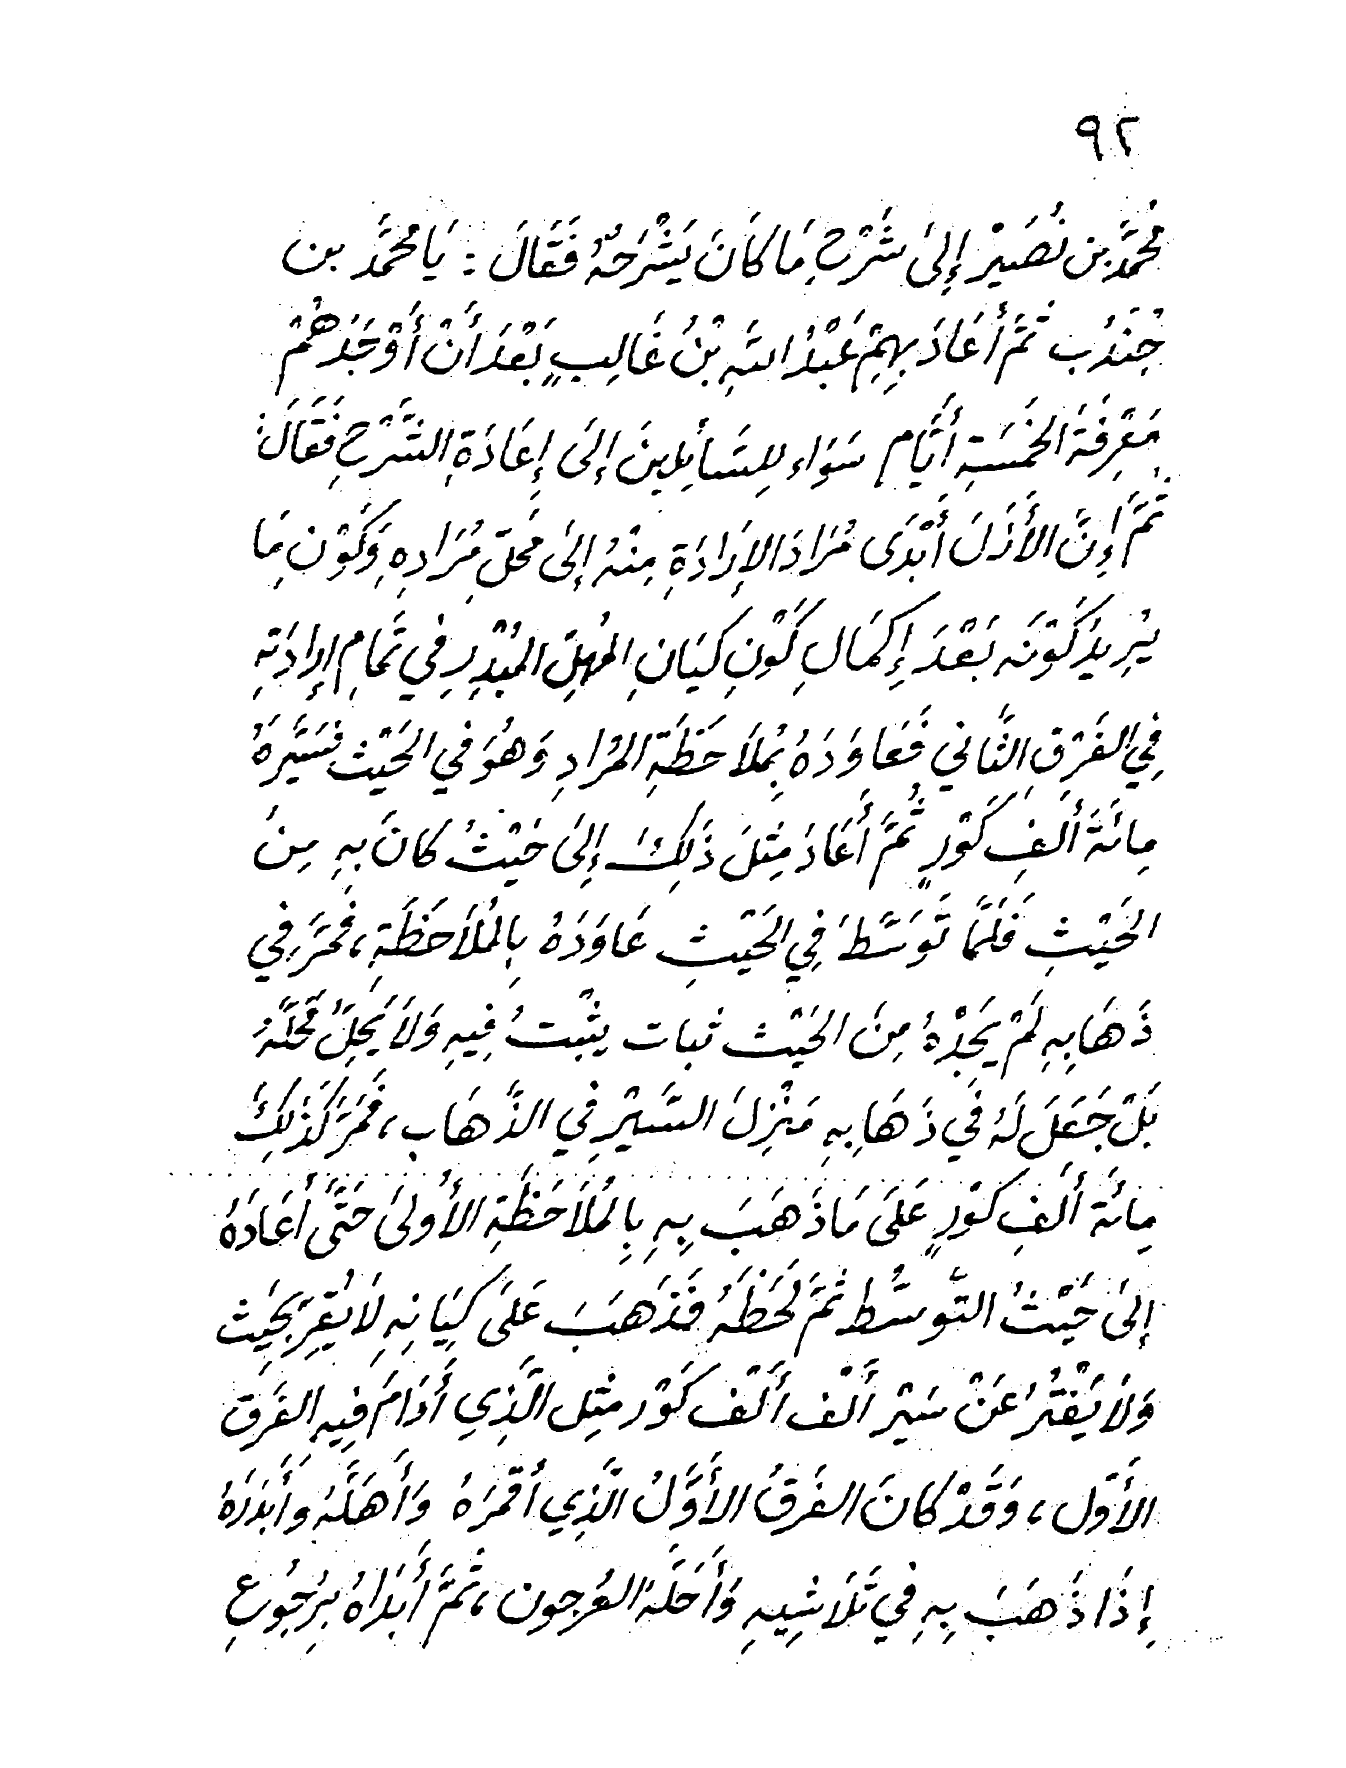 ٩٢
مُحَمَّدُ بن نُصَيْرْ إِلىَ شَرْحِ مَا كَانَ يَشْرَحَهُ فَقَالَ : يَا مُحَمَّدُ بن
جُنْدُب ثُمَّ أَعَادَ بِهِمْ عَبْدُ اللهِ بْنُ غَالِبٍ بَعْدَ أَنْ أَوْجَدَهُمْ
مَعْرِفَةَ الخَمْسَةِ أَيَّام سَوَاء لِلسَّائِلِينَ إِلىَ إِعَادَةِ الشَّرْحِ فَقَالَ :
ثُمَّ إِنَّ الأَزَلَ أَبْدَى مُرَادَ الإِرَادَةِ مِنْهُ إِلىَ مَحَلّ مُرَادِهِ وَكَوْن مَا
يُرِيدُ كَوْنَه بَعْدَ إِكمَالِ كَوْنِ كيَانِ المُهِلِّ المُبْدِرِ فِي تَمَامِ إِرَادَتِهِ
فِي الفَرْقِ الثَّاني فَعَاوَدَهُ بِمُلاَحَظَةِ المُرَادِ وَهُوَ فِي الحَيْث فَسَيَّرَهُ
مِائَةَ أَلفِ كَوْرٍ ثُمَّ أَعَادَ مِثْلَ ذَلِكَ إِلىَ حَيْثُ كانَ بِهِ مِنَ
الحَيْثِ فَلَمَّا تَوَسَّطَ فِي الحَيْثِ عَاوَدَهُ بِالمُلاَحَظَةِ ، فَمَرَّ فِي
ذَهَابِهِ لَمْ يَجِدْهُ مِنَ الحَيْث ثبات يثْبُتُ فِيهِ وَلاَ يَحِلّ مَحَلَّهُ
بَلْ جَعَلَ لَهُ فِي ذَهَابِهِ مَنْزِلَ السَّيْرِ فِي الذَّهَابِ ، فَمَرَّ كَذَلِكَ
مِائَةَ أَلفِ كَوْرٍ عَلىَ مَا ذَهَبَ بِهِ بِالمُلاَحَظَةِ الأُولىَ حَتَّى أَعَادَهُ
إِلىَ حَيْثُ التَّوسُّط ثُمَّ لَحَظَهُ فَذَهَبَ عَلىَ كِيَانِهِ لاَ يُقِرّ بِحَيْث
وَلاَ يَفْتُرُ عَنْ سَيْرِ أَلْف أَلْف كَوْر مثِل الَّذِي أَدَامَ فِيهِ الفَرَق
الأَوَّل ، وَقَدْ كَانَ الفَرَقُ الأَوَّلُ الَّذِي أَقْمَرَهُ وَأَهَلَّهُ وَأَبْدَرَهُ
إِذَا ذَهَبَ بِهِ فِي تَلاَشِيهِ وَأَحَلَّهُ العُرجون ، ثُمَّ أَبدَاهُ بِرُجُوعِ